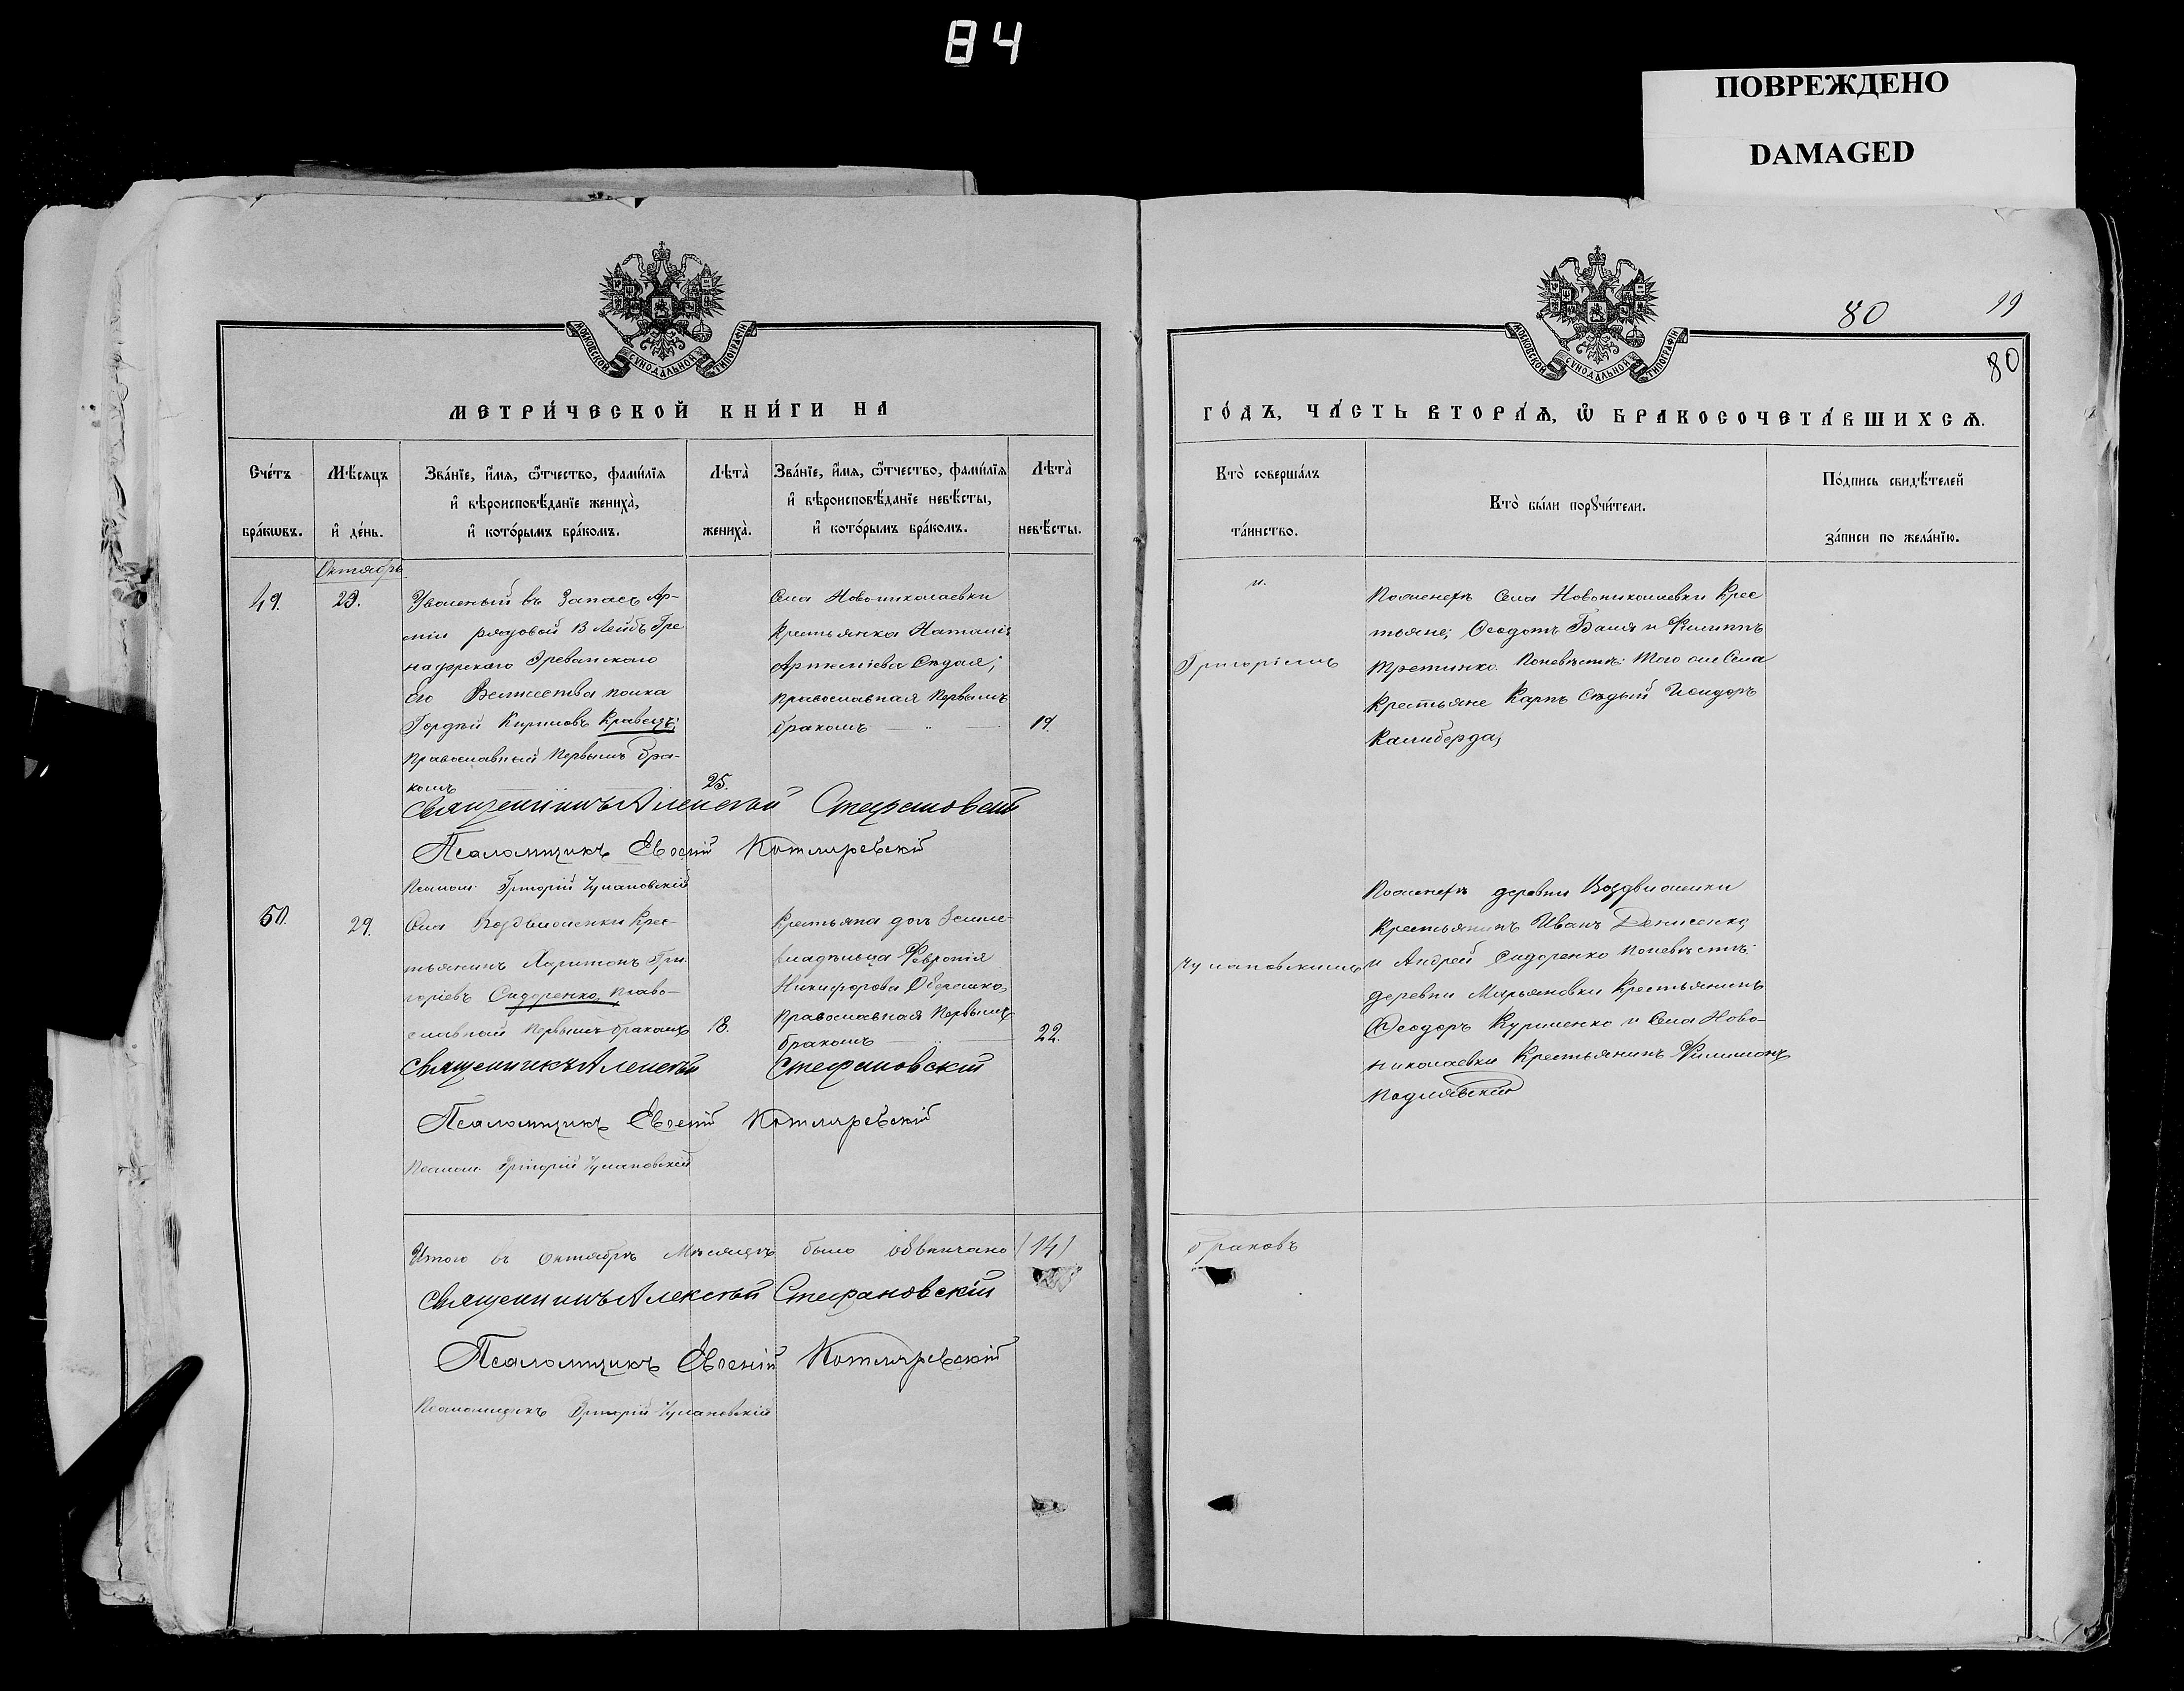 84
ПОВРЕЖДЕНО
DAMAGED
МОСКОВСКОЙ СѴНОДАЛЬНОЙ ТИПОГРАФІИ
МЕТРИ́ЧЕСКОЙ КНИ́ГИ НА
Сче́тъ бра́кѡвъ.
Мѣ́сяцъ и҆ де́нь.
Зва́нїе, и҆́мя, ѻ҆́тчество, фами́лїя
и҆ вѣроисповѣ́данїе жениха̀,
и҆ кото́рымъ бра́комъ.
Лѣта̀ жениха̀.
Зва́нїе, и҆́мя, ѻ҆́тчество, фами́лїя
и҆ вѣроисповѣ́данїе невѣ́сты,
и҆ кото́рымъ бра́комъ.
Лѣта̀ невѣ́сты.
Октябрь
49.
23.
Уволеный въ Запасъ Ар-
міи рядовой 13 Лейбъ Гре
надерскаго Эреванскаго
Его Величества полка
Гордѣй Кириловъ Кравецъ;
Православный Первымъ бра-
комъ
25.
Села Новониколаевки
Крестьянка Наталія
Артеміева Сѣдая;
Православная Первымъ
бракомъ
19.
Священникъ Алексѣй Стефановскій
Псаломщикъ Евгеній Котляревскій
Псалом. Григорій Чулановскій
50.
29.
Села Воздвиженки Крес-
тьянинъ Харитонъ Гри
горіевъ Сидоренко, Право-
славный Первымъ бракомъ
18.
Крестьяна дочь Земле-
владѣльца Февронія
Никифорова
Православная Первымъ
бракомъ
22.
Священникъ Алексѣй Стефановскій
Псаломщикъ Евгеній Котляревскій
Псалом. Григорій Чулановскій
Итого въ Октябрѣ Мѣсяцѣ было обвенчано (14)
Священникъ Алексѣй Стефановскій
Псаломщикъ Евгеній Котляревскій
Псаломщикъ Григорій Чулановскій
80
80
МОСКОВСКОЙ СѴНОДАЛЬНОЙ ТИПОГРАФІИ
ГО́ДЪ, ЧА́СТЬ ВТОРА́Ѧ, Ѽ БРАКОСОЧЕТА́ВШИХСѦ.
Кто̀ соверша́лъ та́инство.
Кто̀ бы́ли порꙋчи́тели.
По́дпись свидѣ́телей за́писи по жела́нїю.
и.
Григоріемъ
По женехѣ Села Новониколаевки Крес
тьяне; Ѳеодотъ и Филиппъ
Третинко. Поневѣстѣ: Того же Села
Крестьяне Карпъ Сѣдый Исидоръ
Калиберда;
Чулановскимъ
По женехѣ деревни Воздвиженки
Крестьянинъ Иванъ Денисенко,
и Андрей Сидоренко Поневѣстѣ:
деревни Марьяновки Крестьянинъ
Ѳеодоръ и Села Ново-
николаевки Крестьянинъ Филимонъ
браковъ